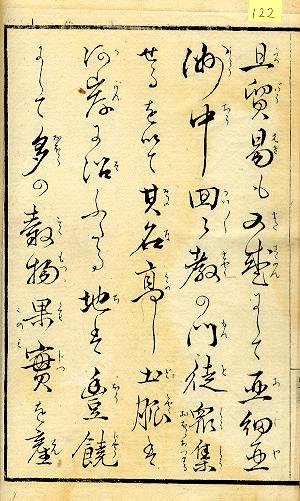 122
且貿易も亦盛にして亜細亜
洲中回々教の門徒衆集
せるを以て其名高し土脈は
河岸に沿ふたる地は豊饒
にして多の穀物果實を産